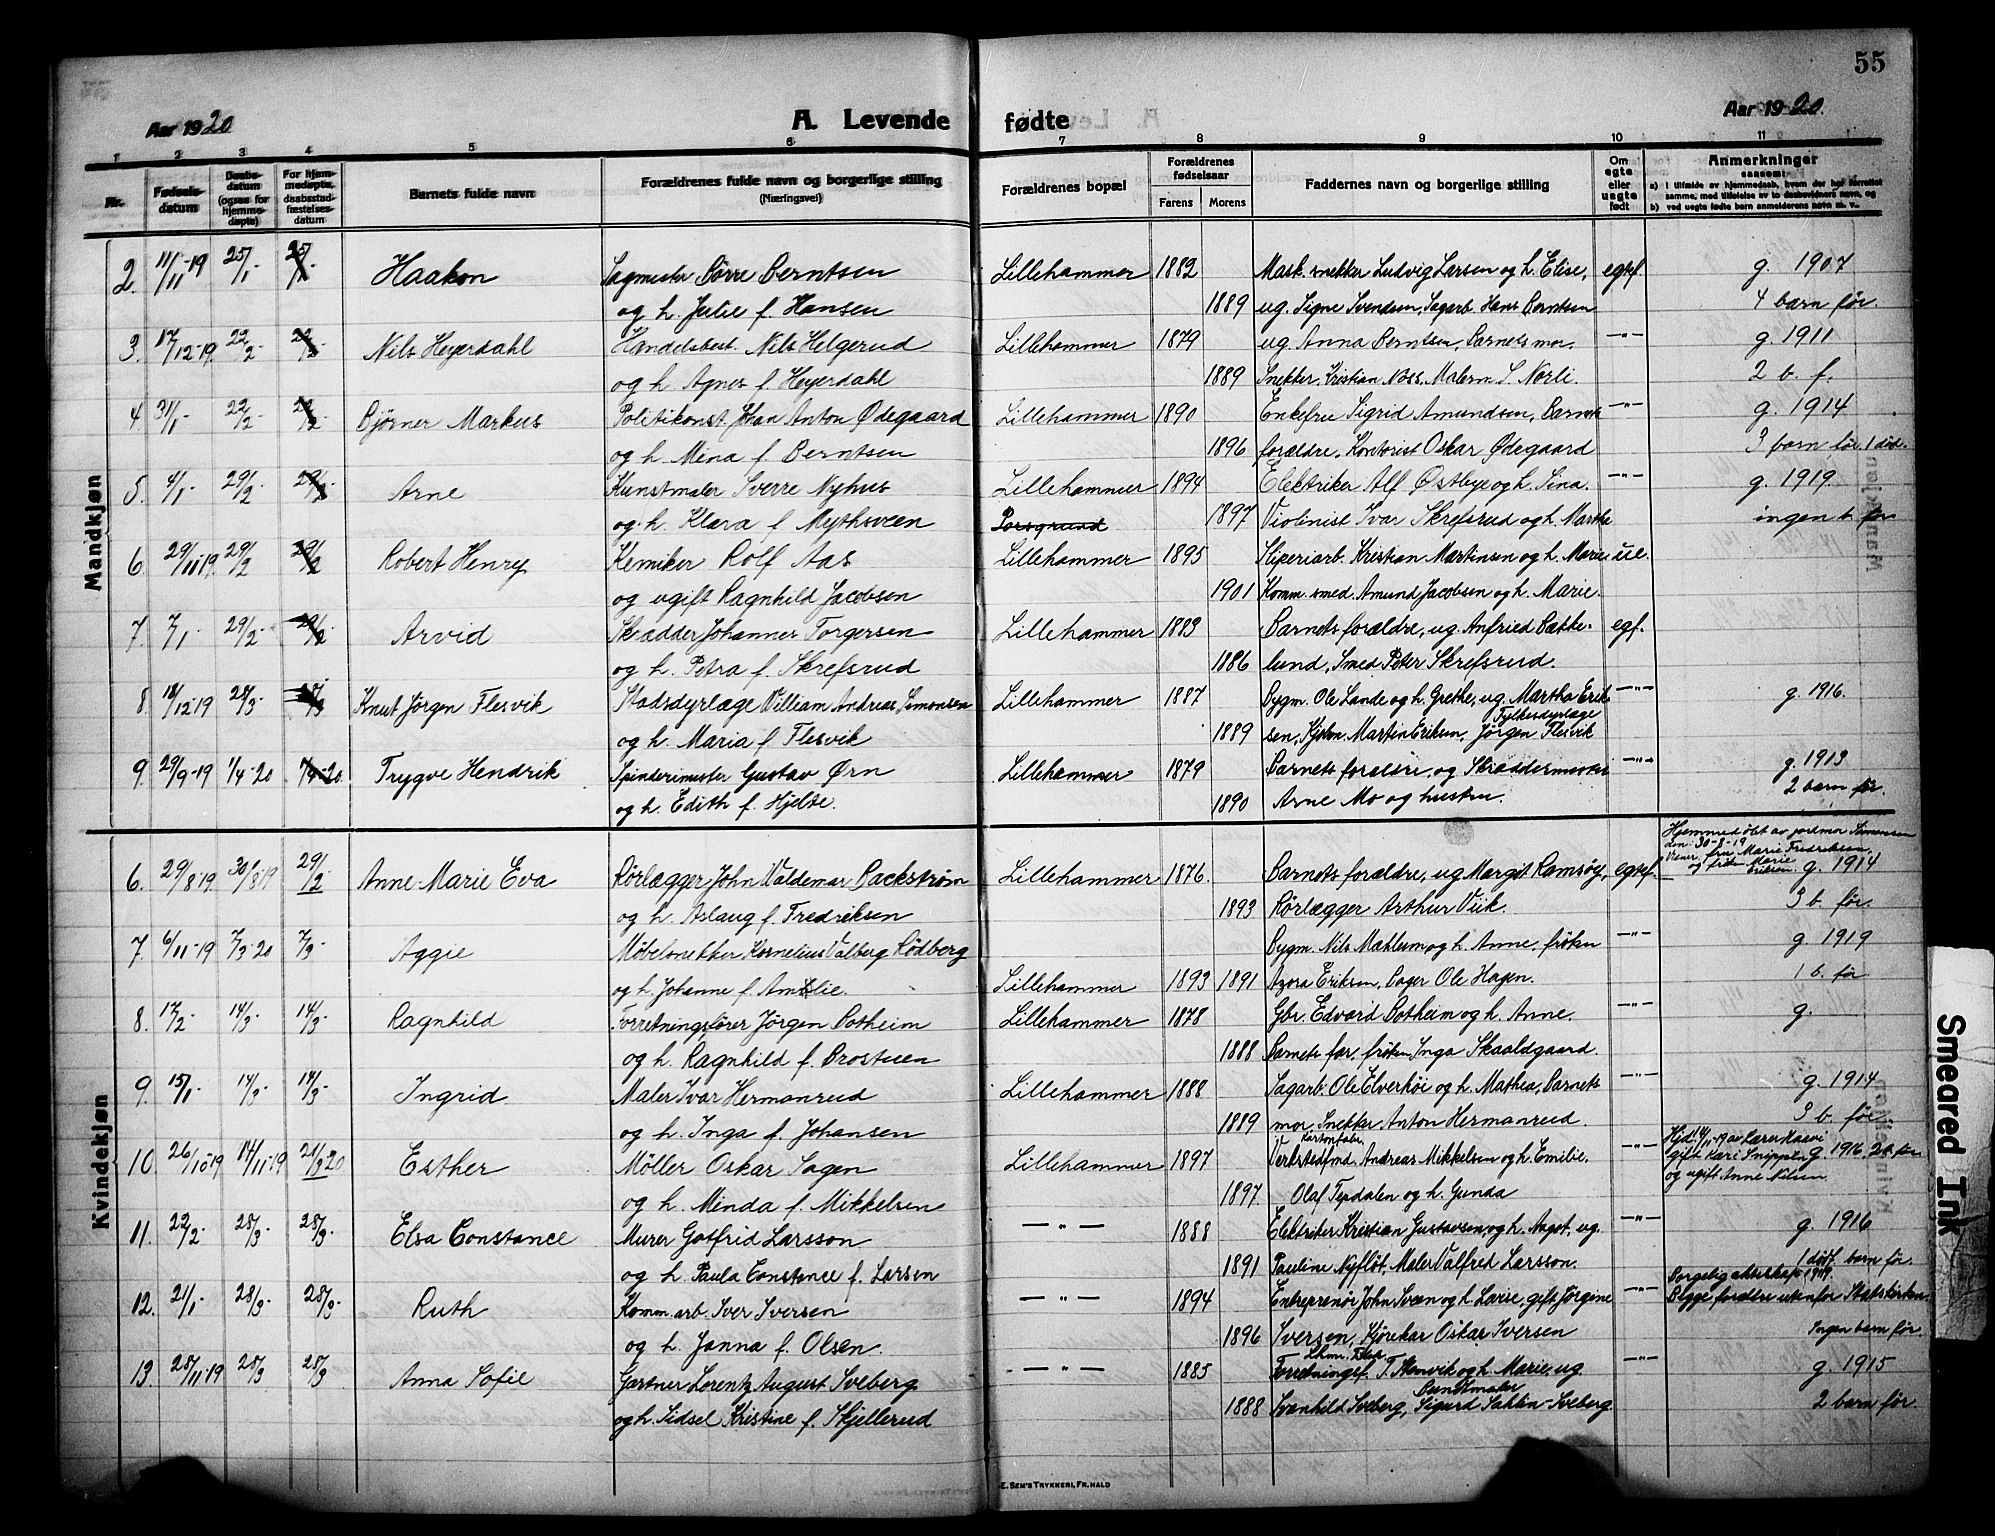 55
Aar 1920
A. Levende fødte
Aar 1920.
1 2 3 4 5 6 7 8 9 10 11
Nr.
Fødsels-
datum
Daabs-
datum
(ogsaa for
hjemme-
døpte)
For hjem-
medøpte,
daabsstad-
fæstelses-
datum
Barnets fulde navn
Forældrenes fulde navn og borgerlige stilling
(Næringsvei)
Forældrenes bopæl
Forældrenes
fødselsaar
Farens Morens
Faddernes navn og borgerlige stilling
Om
egte
eller
uegte
født
Anmerkninger
saasom:
a) i tilfælde av hjemmedaab, hvem der har forrettet
samme, med tilføielse av to daabsvidners navn, og
b) ved uegte fødte barn anmelderens navn m. v.
Mandkjøn
2. 11/11-19 25/1- Haakon Sagmester Børre Berntsen Lillehammer 1882 Mask. snekker Ludvig Larsen og h. Elise, egtef. g. 1907
og h. Julie f. Hansen 1889 ug. Signe Svendsen, Sagarb. Hans Berntsen 4 barn før.
3. 17/12-19 22/2- Nils Heyerdahl Handelsbest. Nils Helgerud Lillehammer 1879 ug. Anna Berntsen, Barnets mor. —"— g. 1911
og h. Agnes f. Heyerdahl 1889 Snekker Kristian Noss, Malerm. S. Norli. 2 b. f.
4. 31/1- 22/2- Bjørner Markus Politikonst. Johan Anton Ødegaard Lillehammer 1890 Enkefru Sigrid Amundsen, Barnets —"— g. 1914
og h. Mina f. Berntsen 1896 forældre, Kontorist Oskar Ødegaard 3 barn før, 1 død.
5. 4/1- 29/2- Arne Kunstmaler Sverre Nyhus Lillehammer 1894 Elektriker Alf Østbye og h. Lina. —"— g. 1919.
og h. Klara f. Mythsveen Porsgrund 1897 Violinist Ivar Skrefsrud og h. Martha ingen b. før
6. 29/11-19. 29/2 29/2 Robert Henry Kemiker Rolf Aas Lillehammer 1895 Sliperiarb. Kristian Martinsen og h. Marie ue.
og ugift Ragnhild Jacobsen 1901 Komm. smed. Amund Jacobsen og h. Marie.
7. 7/1- 29/2- 29/2 Arvid Skrædder Johannes Torgersen Lillehammer 1883 Barnets forældre, ug. Anfried Bække- egf.
og h. Petra f. Skrefsrud 1886 lund, Smed Peter Skrefsrud.
8. 18/12-19 28/3- Knut Jørgen Flesvik Stadsdyrlæge Villiam Andreas Simonsen Lillehammer 1887 Bygm. Ole Lande og h. Grethe, ug. Martha Erik- —"— g. 1916.
Fylkesdyrlæge
og h. Maria f. Flesvik 1889 sen, Kjøbm. Martin Eriksen, Jørgen Flesvik
9. 29/9-19 1/4-20 Trygve Hendrik Spinderimester Gustav Ørn Lillehammer 1879 Barnets forældre, og Skræddermester —"— g. 1913
og h. Edith f. Hjelte. 1890 Arne Mo og hustru. 2 barn før.
Kvindekjøn
Hjemmedøbt av jordmor Simensen
den 30-8-19
Vidner fru Marie Fredriksen
og frøken Marie
Eriksen
6. 29/8-19. 30/8-19 29/2 Anne Marie Eva Rørlægger John Valdemar Backstrøm Lillehammer 1876. Barnets forældre, ug Margit Ramsøy, egtef. g. 1914
og h. Aslaug f. Fredriksen 1893 Rørlægger Arthur Viik. 3 b. før.
7. 6/11-19 7/3-20 7/3- Aggie Møbelsnekker Kornelius Valberg Rødberg Bygm. Nils Mæhlum og h. Anne, frøken —"— g. 1919
og h. Johanne f. Amblie. Lillehammer 1893 1891 Azora Eriksen, Bager Ole Hagen. 1 b. før
8. 17/2- 14/3- 14/3- Ragnhild Forretningsfører Jørgen Botheim Lillehammer 1878 Gbr. Edvard Botheim og h. Anne. —"— g.
og h. Ragnhild f. Brostuen 1888 Barnets far, frøken Inga Skaaldgaard.
9. 15/1- 14/3- 14/3- Ingrid Maler Ivar Hermanrud Lillehammer 1888 Sagarb. Ole Elverhøi og h. Mathea, Barnets —"— g. 1914
og h. Inga f. Johansen 1889 mor, Snekker Anton Hermanrud. 3 b. før
10. 26/10-19 14/11-19 21/3-20 Esther Møller Oskar Sagen Lillehammer 1897 Verkstedfmd. Andreas Mikkelsen og h. Emilie. —"— gift Kari Snippler g. 1916. 2 b. før
og ugift Anne Nilsen
og h. Minda f. Mikkelsen 1897 Olaf Tepdalen og h. Gunda
11. 22/2- 28/3- 28/3- Elsa Constance Murer Gotfrid Larsson —"— 1888 Elektriker Kristian Gustavsen og h. Aagot, ug. —"— g. 1916
og h. Paula Constance f. Larsen 1891 Pauline Nyfløt, Maler Valfred Larsson. 1 dødf. barn før.
Borgerlig ekteskap 1919.
12. 21/1- 28/3- 28/3- Ruth Komm. arb. Iver Iversen —"— 1894 Entreprenør John Svæn og h. Lovise, gift Jørgine —"— Begge foræltre utenfor Statskirken
og h. Janna f. Olsen. 1896 Iversen, Kjørekar Oskar Iversen Ingen barn før.
13. 28/11-19 28/3- 28/3 Anna Sofie Gartner Lorentz August Sveberg —"— 1885 Forretningsf. T. Stenvik og h. Marie, ug. —"— g. 1915
Kunstmaler
og h. Sidsel Kristine f. Skjellerud 1888 Svanhild Sveberg, Sigurd Sahlin-Sveberg 2 barn før.
E. SEM'S TRYKKERI, FR.HALD
Smeared Ink